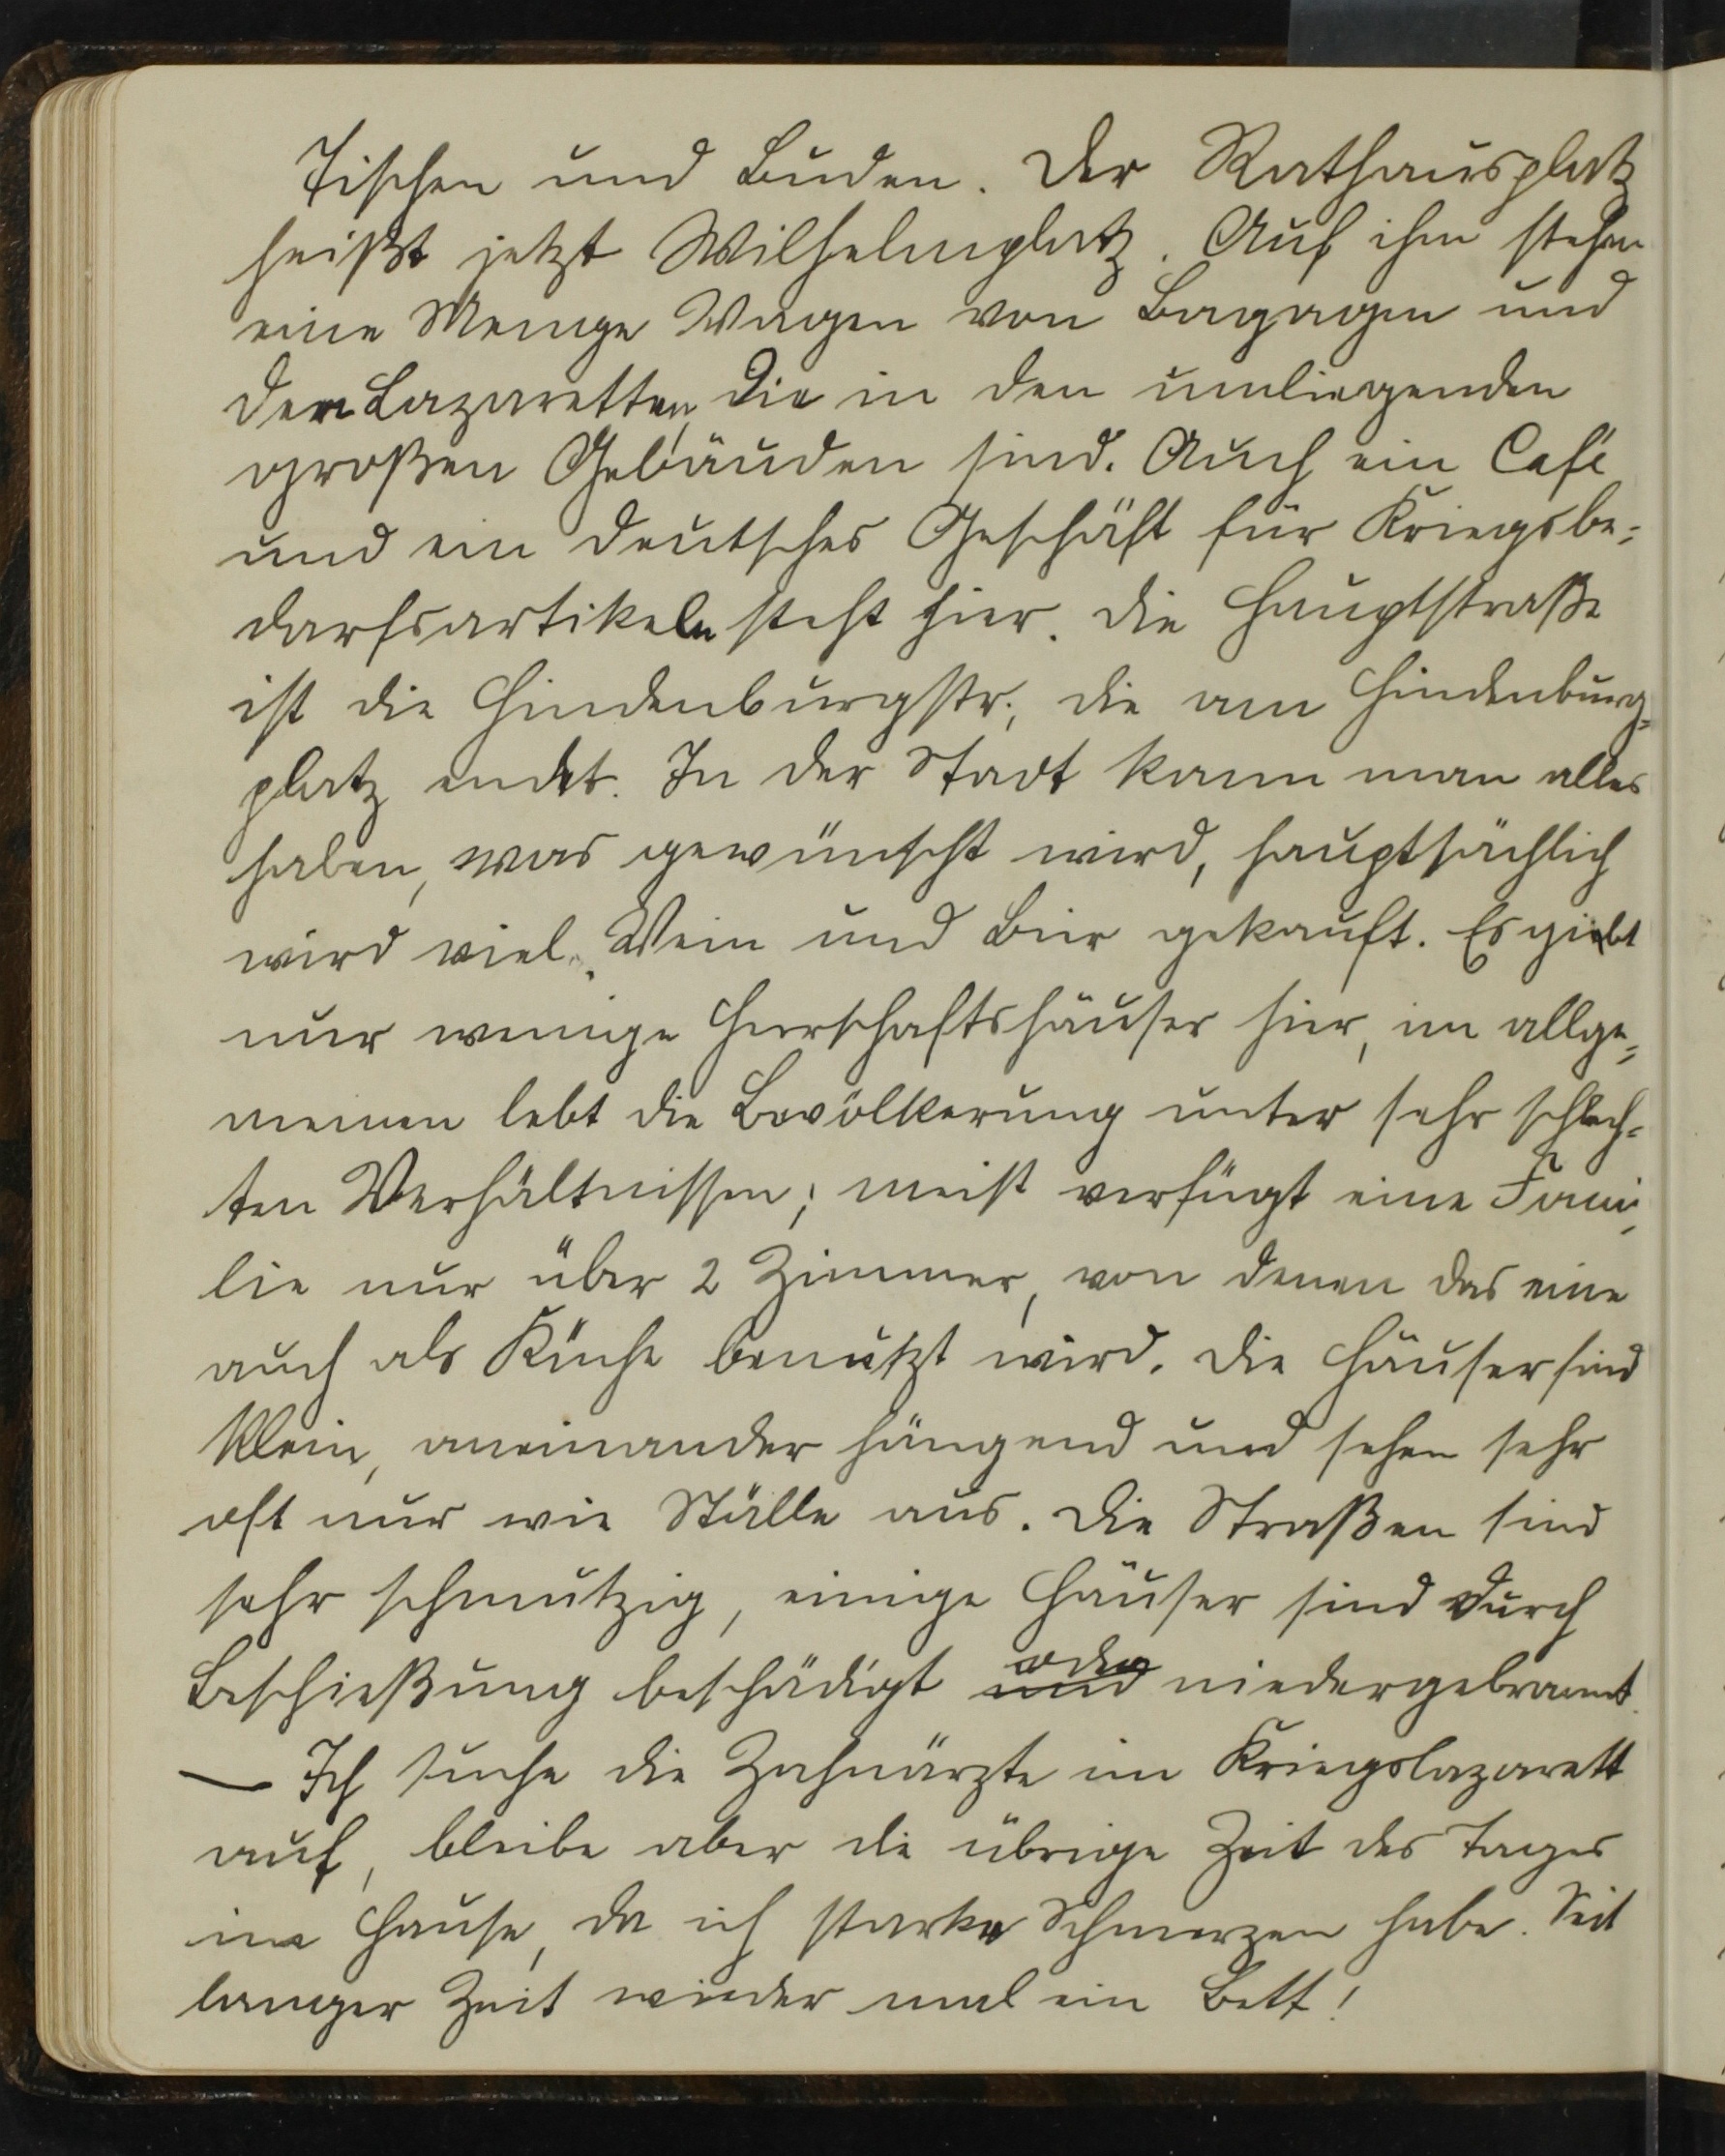 Tischen und Buden. Der Rathausplatz
heißt jetzt Wilhelmplatz. Auf ihm stehen
eine Menge Wagen von Bagagen und
den Lazaretten, die in den umliegenden
großen Gebäuden sind. Auch ein Café
und ein deutsches Geschäft für Kriegsbe-
darfsartikeln steht hier. Die Hauptstraße
ist die Hindenburgstr., die am Hindenburg-
platz endet. In der Stadt kann man alles
haben, was gewünscht wird, hauptsächlich
wird viel Wein und Bier gekauft. Es giebt
nur wenige Herrschaftshäuser hier, im allge-
meinen lebt die Bevölkerung unter sehr schlech-
ten Verhältnissen; meist verfügt eine Fami-
lie nur über 2 Zimmer, von denen das eine
auch als Küche benützt wird. Die Häuser sind
klein, aneinander hängend und sehen sehr
oft nur wie Ställe aus. Die Straßen sind
sehr schmutzig, einige Häuser sind durch
Beschießung beschädigt und oder niedergebrannt.
— Ich suche die Zahnärzte im Kriegslazarett
auf, bleibe aber die übrige Zeit des Tages
im Hause, da ich starke Schmerzen habe. Seit
langer Zeit wieder mal ein Bett!